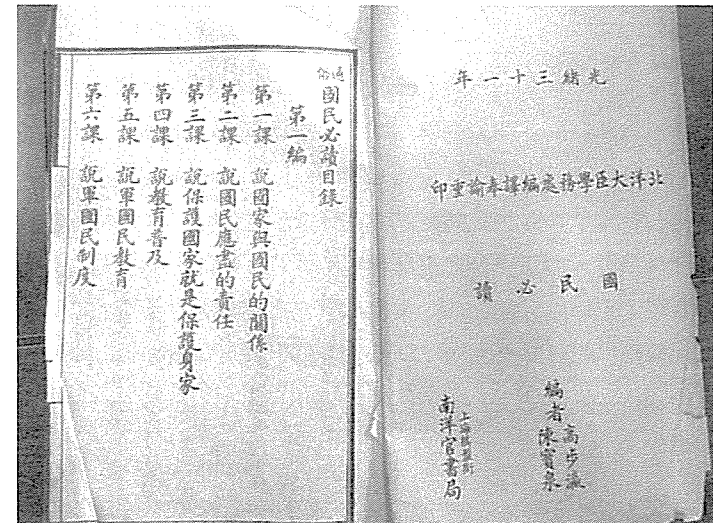 光緒三十一年
北洋大臣學務處編譯奉諭重印
國民必讀
編者
高步瀛
陳寶泉
南洋官書局
通俗國民必讀目錄
第一編
第一課　說國家與國民的關係
第二課　說國民應盡的責任
第三課　說保護國家就是保護身家
第四課　說教育普及
第五課　說軍國民教育
第六課　說軍國民制度